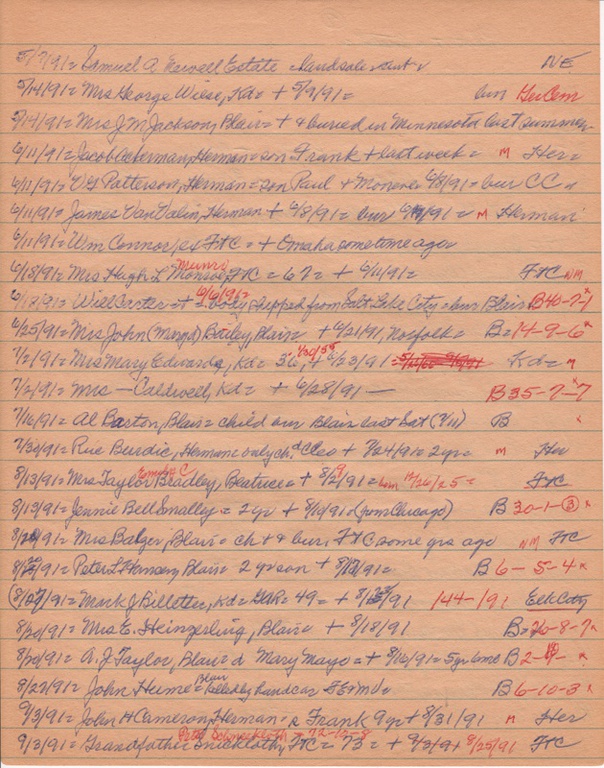 5/7/91= Samuel A. Newell Estate landsale NE
5/14/91= Mrs George Wiese, Kd= + 5/9/91= bur Ger Cem
5/14/91= Mrs J M Jackson, Blair= + & buried in Minnesota last summer
6/11/91= Jacob Ackerman, Herman= son Frank + last week= M Her=
6/11/91= Patterson, Herman= son Paul + 6/8/91= bur CC
6/11/91= James Van Valin, Herman + 6/8/91= bur 6/9/91= M Herman
6/11/91= Wm Connor, ex FtC= + Omaha sometime ago
Munro
6/18/91= Mrs Hugh L Monroe, FtC= 67= + 6/11/91= FtC NM
6/6/91=
6/18/91= Will Carter= + body shipped from Salt Lake City= bur Blair B40-7-1 x
6/25/91= Mrs John (Mary J) Bailey, Blair= + 6/21/91, Norfolk= B=14-9-6 x
7/2/91= Mrs Mary Edwards, Kd= 36, + 6/23/91= Kd= M
7/2/91= Mrs — Caldwell, Kd= + 6/28/91 — B35-7-7 x
7/16/91= Al Baston, Blair= child bur Blair last Sat (7/11) B x
7/30/91= Rue Burdic, Herman= only ch. d Cleo + 7/24/91= 2 yr= M Her
8/13/91= Mrs Taylor Bradley, Beatrice= + 8/9/91= born 12/26/25= FtC
8/13/91= Jennie Bell Smalley= 2 yr + 8/10/91 (from Chicago) B 30-1-3 x
Mrs Badger, Blair= ch + & bur. FtC some yrs ago NM FtC
Peter L Hennesy, Blair= 2 yr son + B6-5-4 x
Mark J Billetter, Kd= GAR= 49= + 144-191 Elk City
8/20/91= Mrs E. Heinzerling, Blair= + 8/18/91 B=26-8-7 x
8/20/91= A. J. Taylor, Blair= d Mary Maye= + 8/16/91= 5 yr 6 mo B2-4- x
Blair
8/27/91= John Hume= killed by handcar B6-10-3 x
9/3/91= John H Cameron, Herman= s Frank 9 yr + 8/31/91 M Her
9/3/91= Grandfather FtC= 73= + 8/25/91 FtC